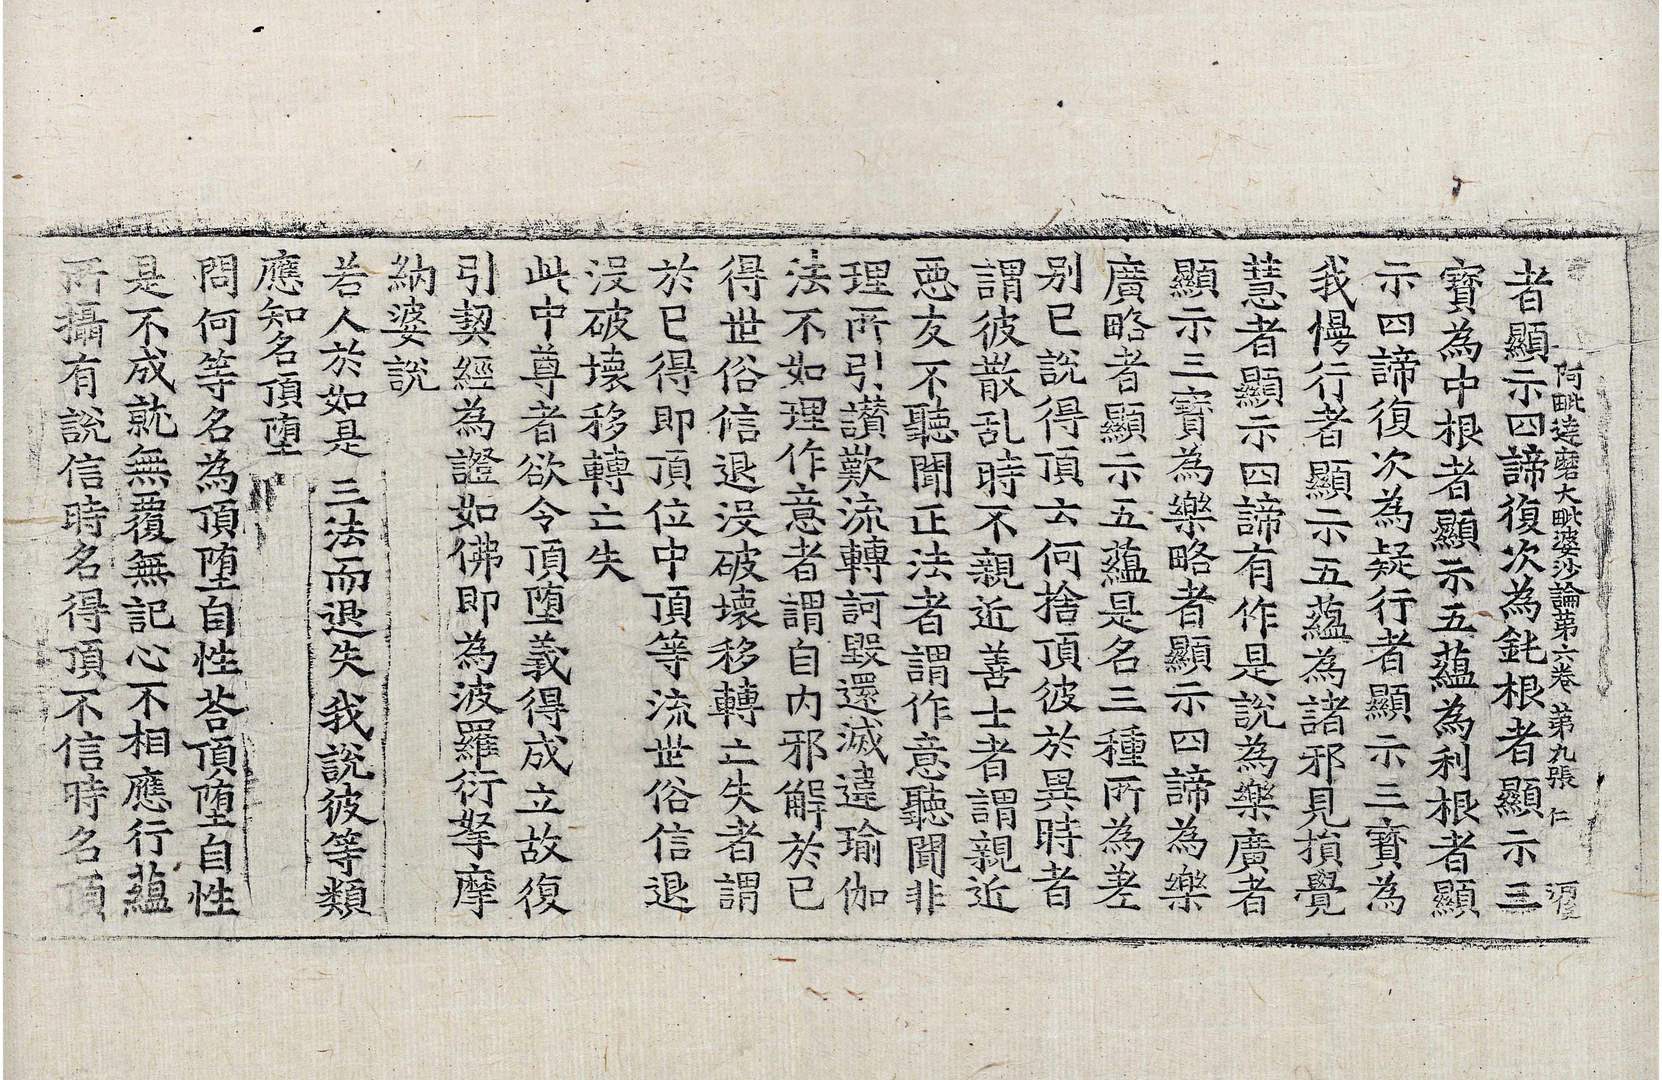 阿毗達磨大毗婆沙論第六卷 第九張 仁
者顯示四諦復次為鈍根者顯示三
寶為中根者顯示五蘊為利根者顯
示四諦復次為疑行者顯示三寶為
我慢行者顯示五蘊為諸邪見損覺
慧者顯示四諦有作是說為樂廣者
顯示三寶為樂略者顯示四諦為樂
廣略者顯示五蘊是名三種所為差
別已說得頂云何捨頂彼於異時者
謂彼散乱時不親近善士者謂親近
惡友不聽聞正法者謂作意聽聞非
理所引讃歎流轉訶毀還滅違瑜伽
法不如理作意者謂自内邪解於已
得世俗信退沒破壞移轉亡失者謂
於已得即頂位中頂等流世俗信退
沒破壞移轉亡失
此中尊者欲令頂墮義得成立故復
引契經為證如佛即為波羅衍拏摩
納婆說
若人於如是 三法而退失 我說彼等類
應知名頂墮
問何等名為頂墮自性荅頂墮自性
是不成就無覆無記心不相應行蘊
所攝有說信時名得頂不信時名頂